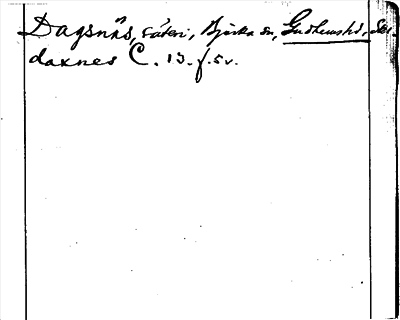 Dagsnäs, säteri, Bjärka sn, Gudhems hd, Se
daxnes C. 13. f. 5v.